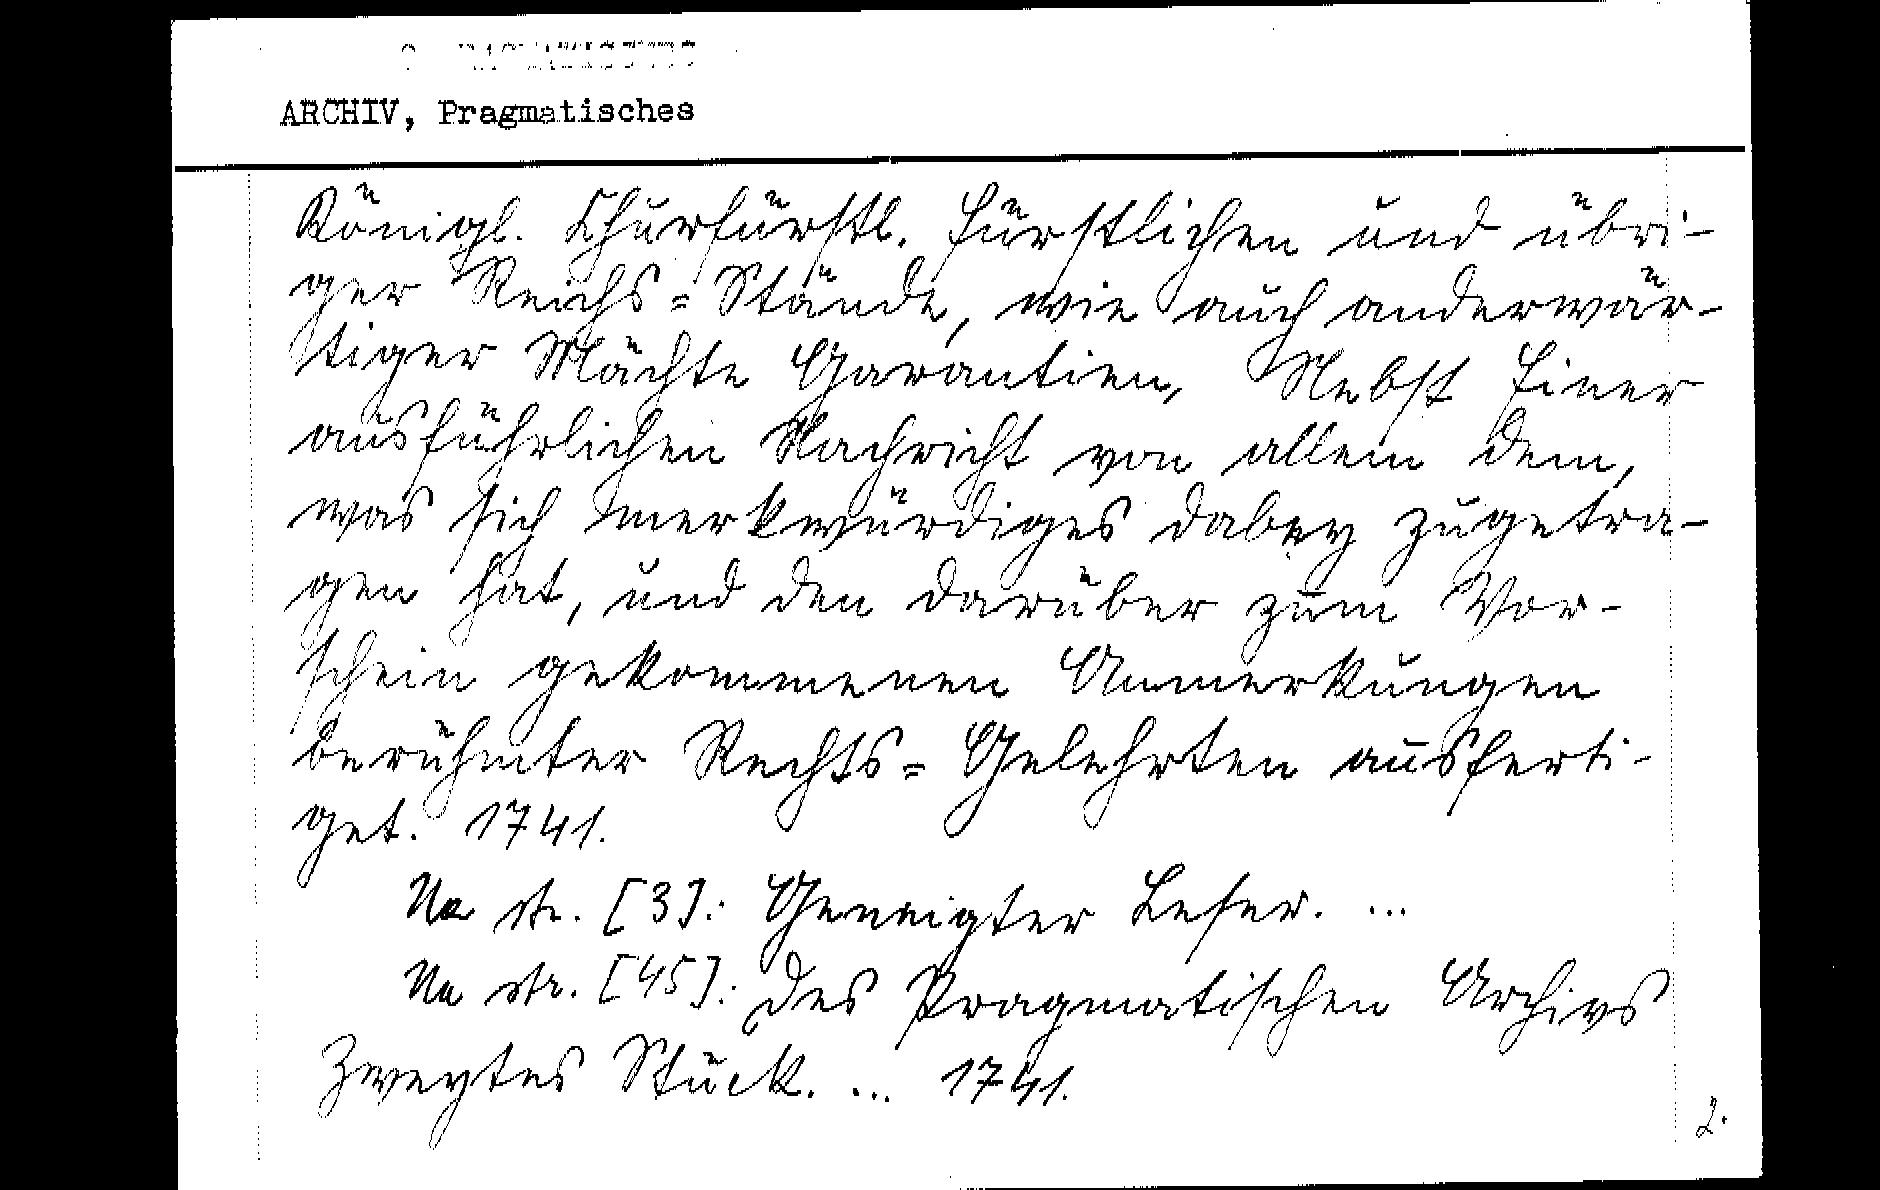 ARCHIV, Pragmatisches
Königl. Churfürstl. Fürstlichen und übri-
ger Reichs=Stände, wie auch anderwär-
tiger Mächte Garantien, Nebst Einer
ausführlichen Nachricht von allem dem,
was sich merkwürdiges dabey zugetra-
gen hat, und den darüber zum Vor-
schein gekommenen Anmerkungen
berühmter Rechts=Gelehrten ausferti-
get. 1741.
Na str. [3]: Geneigter Leser. ...
Na str. [45]: Des Pragmatischen Archivs
Zweytes Stück. ... 1741.
2.